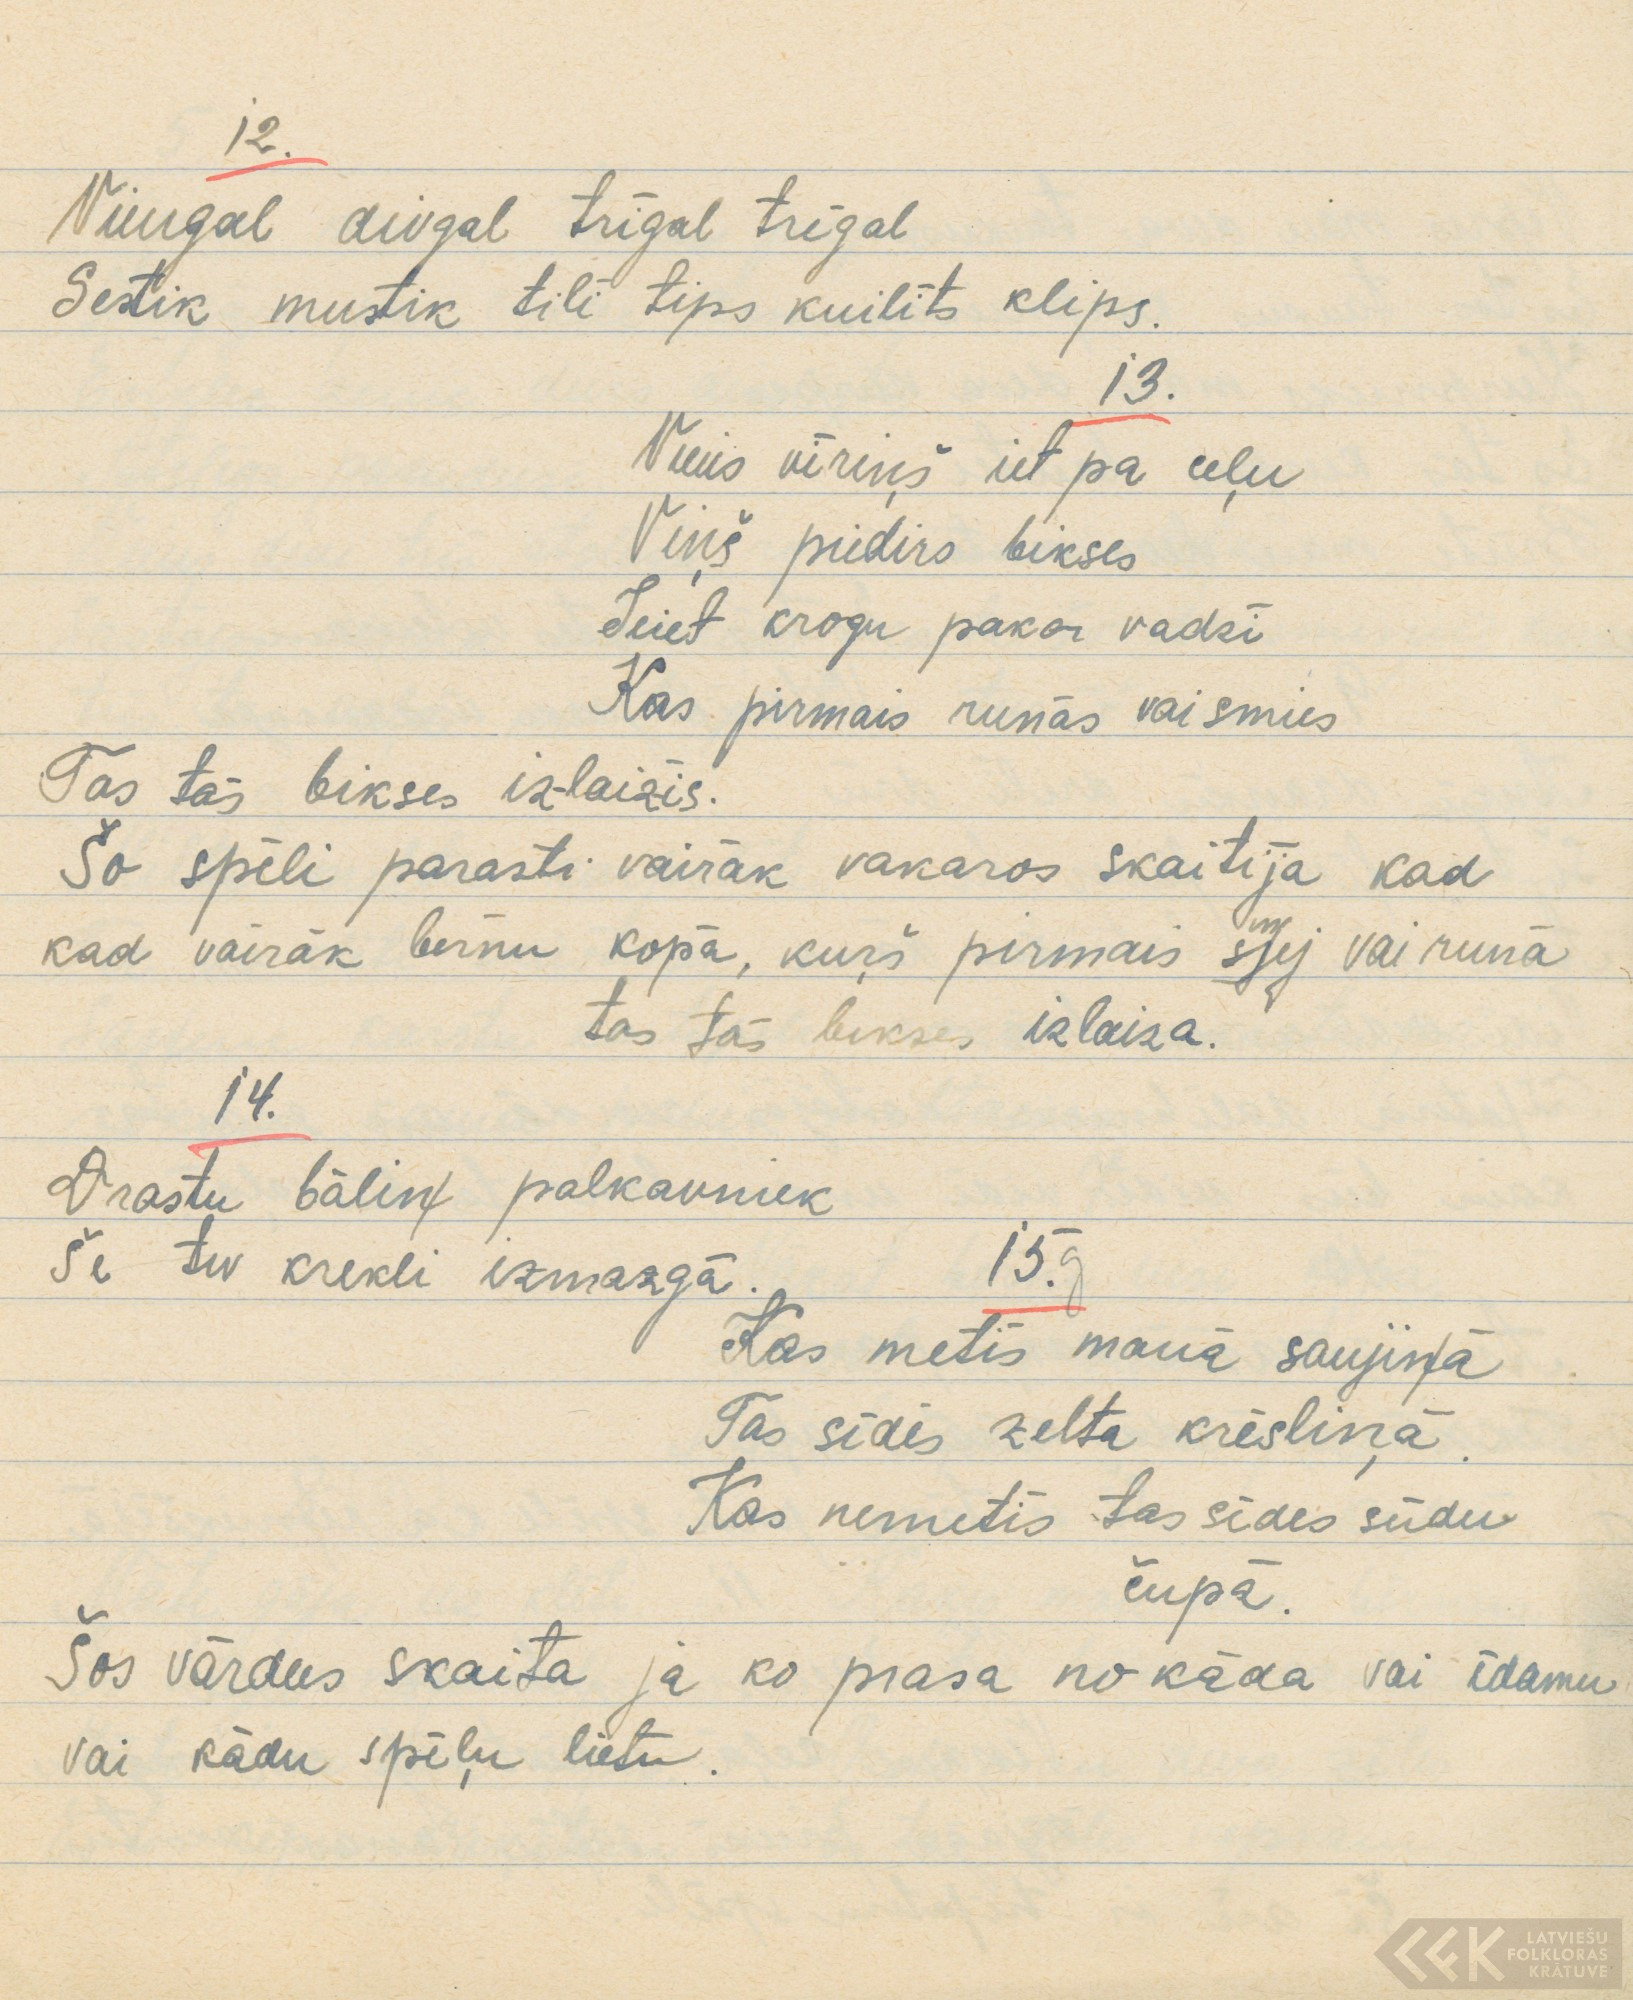 12.
Viengal divgal trīgal trīgal
Sestik mustik tili tips kuilits klips.
13.
Viens vīriņš iet pa ceļu
Viņš piedirs bikses
Ieiet krogu pakar vadzi
Kas pirmais runās vai smies
Tas tās bikses izlaizīs.
Šo spēli parasti vairāk vakaros skaitīja kad
kad vairāk bērnu kopā, kuŗš pirmais smej vai runā
tas tās bikses izlaiza.
14.
Drastu bāliņ palkavniek
Še tev krekli izmazgā.
15.
Kas metīs manā saujiņā
Tas sēdēs zelta krēsliņā.
Kas nemetīs tas sēdēs sūdu
čupā.
Šos vārdus skaita ja ko prasa no kāda vai ēdamu
vai kādu spēļu lietu.
LATVIEŠU
FOLKLORAS
KRĀTUVE